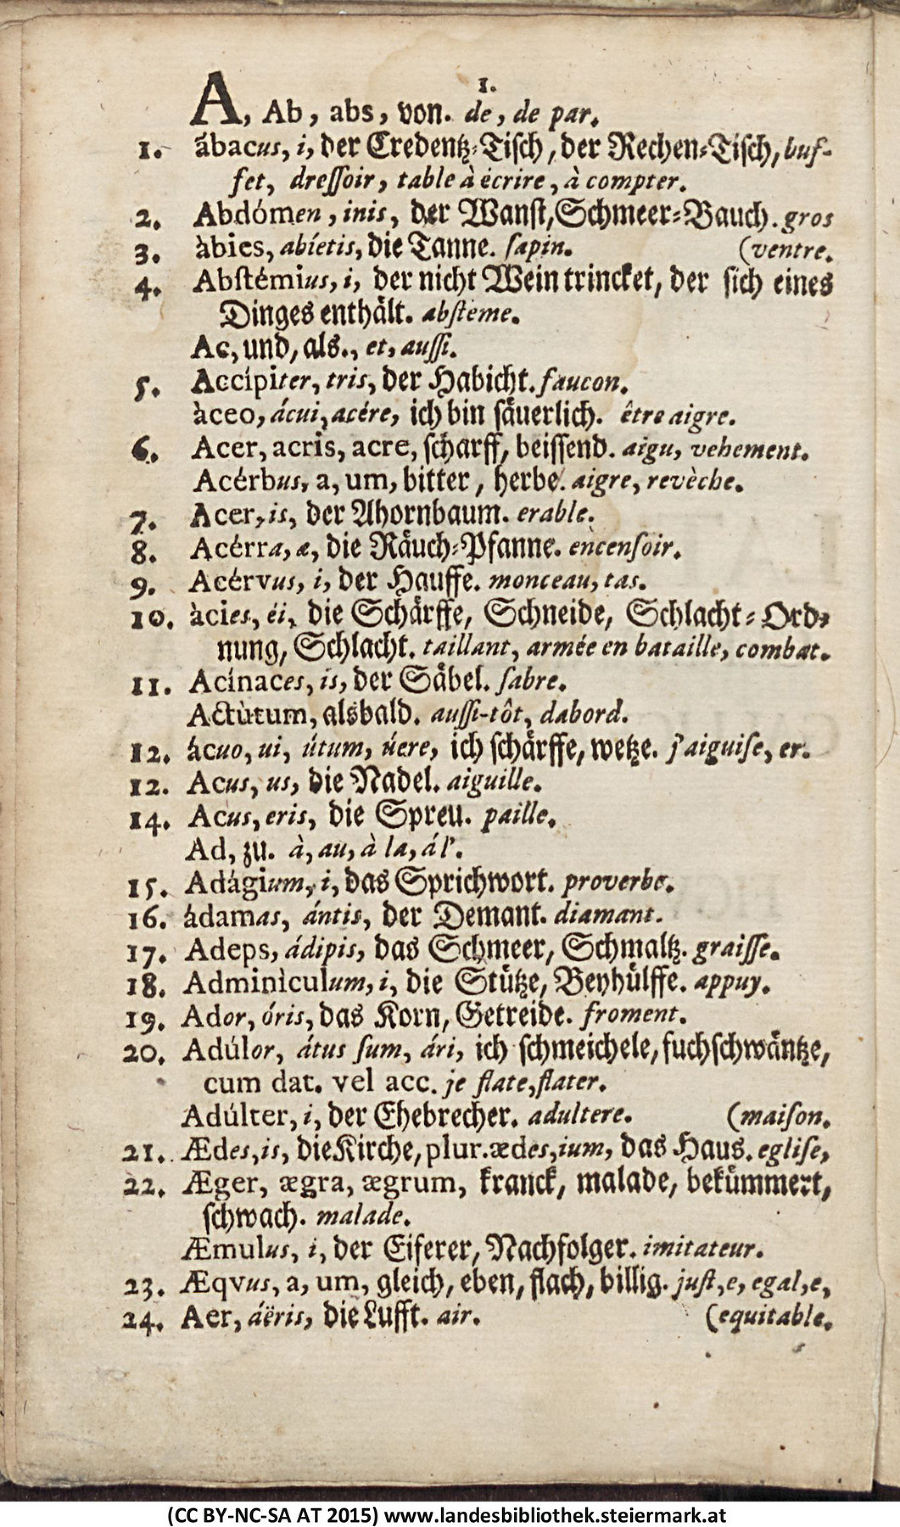 1.
A, Ab, abs, von. de, de par.
1. ábacus, i, der Credentz-Tisch, der Rechen-Tisch, buf-
fet, dressoir, table à ècrire, à compter.
2. Abdómen, inis, der Wanst, Schmeer-Bauch. gros
3. àbies, abíetis, die Tanne. sapin. (ventre.
4. Abstémius, i, der nicht Wein trincket, der sich eines
Dinges enthält. absteme.
Ac, und, als., et, aussi.
5. Accípiter, tris, der Habicht. faucon.
àceo, ácui, acére, ich bin säuerlich. être aigre.
6. Acer, acris, acre, scharff, beissend. aigu, vehement.
Acérbus, a, um, bitter, herbe. aigre, revèche.
7. Acer, is, der Ahornbaum. erable.
8. Acérra, æ, die Räuch-Pfanne. encensoir.
9. Acérvus, i, der Hauffe. monceau, tas.
10. àcies, éi, die Schärffe, Schneide, Schlacht-Ord-
nung, Schlacht. taillant, armée en bataille, combat.
11. Acínaces, is, der Säbel. sabre.
Actùtum, alsbald. aussi-tôt, dabord.
12. ácuo, ui, útum, úere, ich schärffe, wetze. j'aiguise, er.
12. Acus, us, die Nadel. aiguille.
14. Acus, eris, die Spreu. paille.
Ad, zu. à, au, à la, á l'.
15. Adágium, i, das Sprichwort. proverbe.
16. ádamas, ántis, der Demant. diamant.
17. Adeps, ádipis, das Schmeer, Schmaltz. graisse.
18. Adminìculum, i, die Stütze, Beyhülffe. appuy.
19. Ador, óris, das Korn, Getreide. froment.
20. Adúlor, átus sum, ári, ich schmeichele, fuchschwäntze,
cum dat. vel acc. je flate, flater.
Adúlter, i, der Ehebrecher. adultere. (maison.
21. Ædes, is, die Kirche, plur. ædes, ium, das Haus. eglise,
22. Æger, ægra, ægrum, kranck, malade, bekümmert,
schwach. malade.
Æmulus, i, der Eiferer, Nachfolger. imitateur.
23. Æqvus, a, um, gleich, eben, flach, billig. just, e, egal, e,
24. Aer, áëris, die Lufft. air. (equitable.
(CC BY-NC-SA AT 2015) www.landesbibliothek.steiermark.at